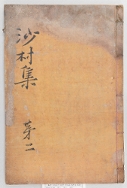 沙村集
第二